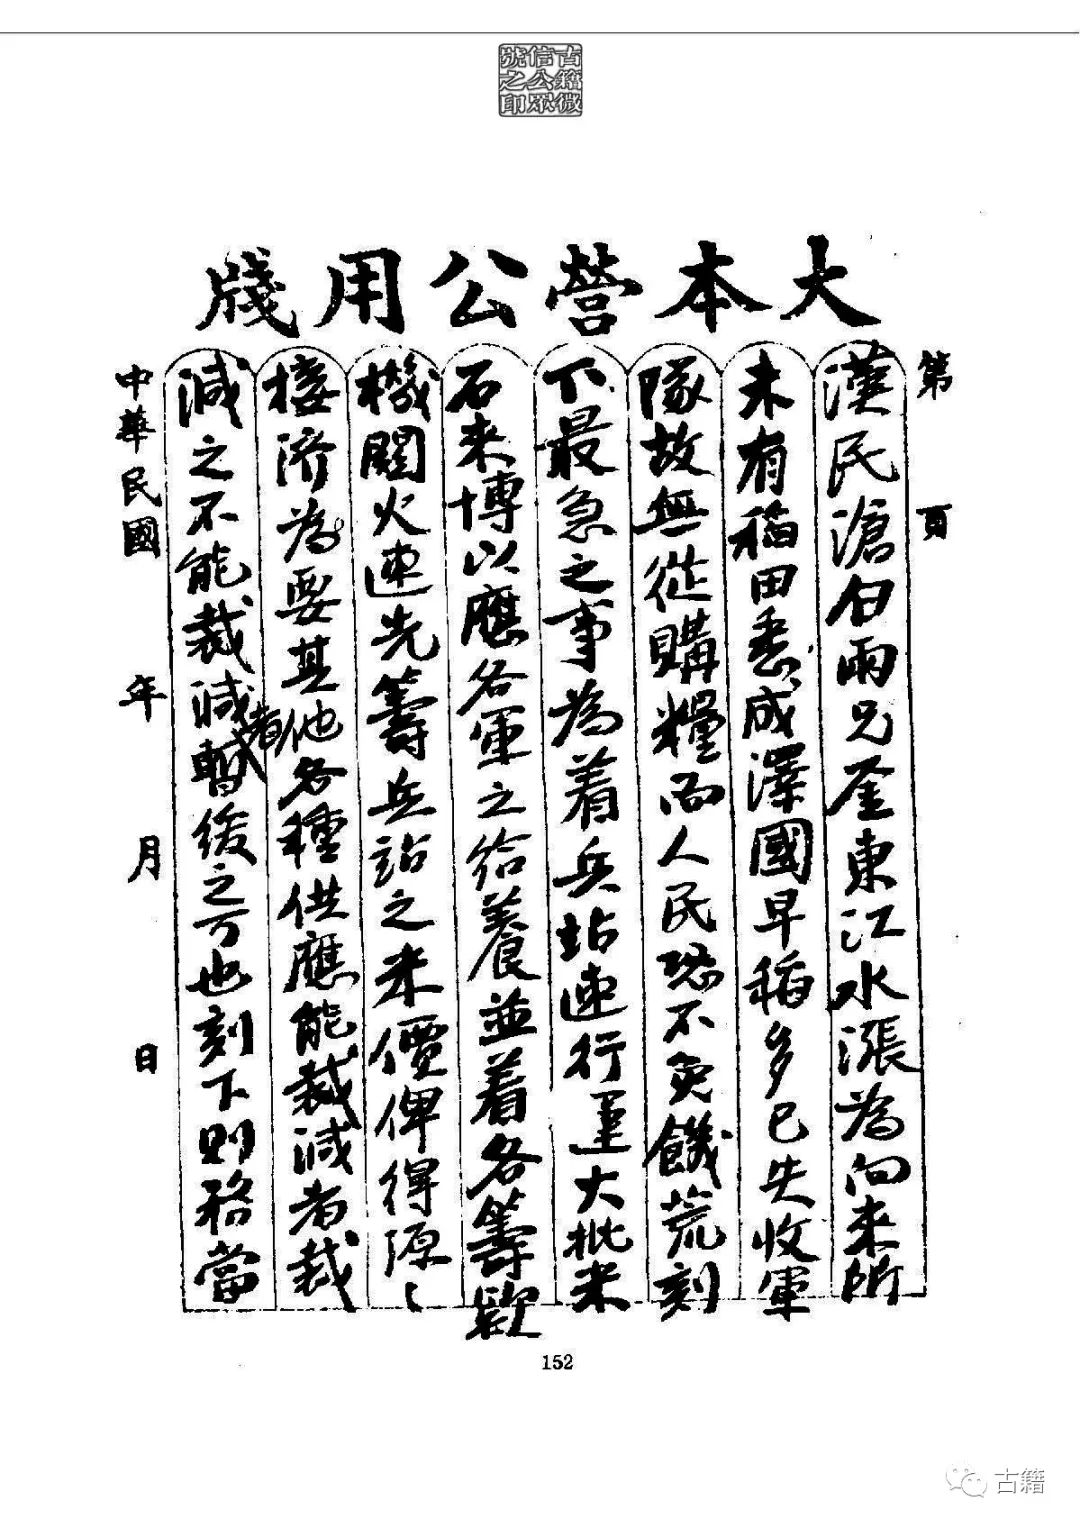 古籍微
信公眾
號之印
大本營公用牋
第 頁
漢民滄白兩兄鉴東江水漲為向來所
未有稻田悉成澤國早稻多已失收軍
隊故無從購糧而人民恐不免饑荒刻
下最急之事為着兵站速行運大批米
石來博以應各軍之給養並着各籌款
機關火速先籌兵站之米價俾得源〻
接济為要其他各種供應能裁減者裁
減之不能裁減者暫後之可也刻下則務當
中華民國 年 月 日
152
古籍